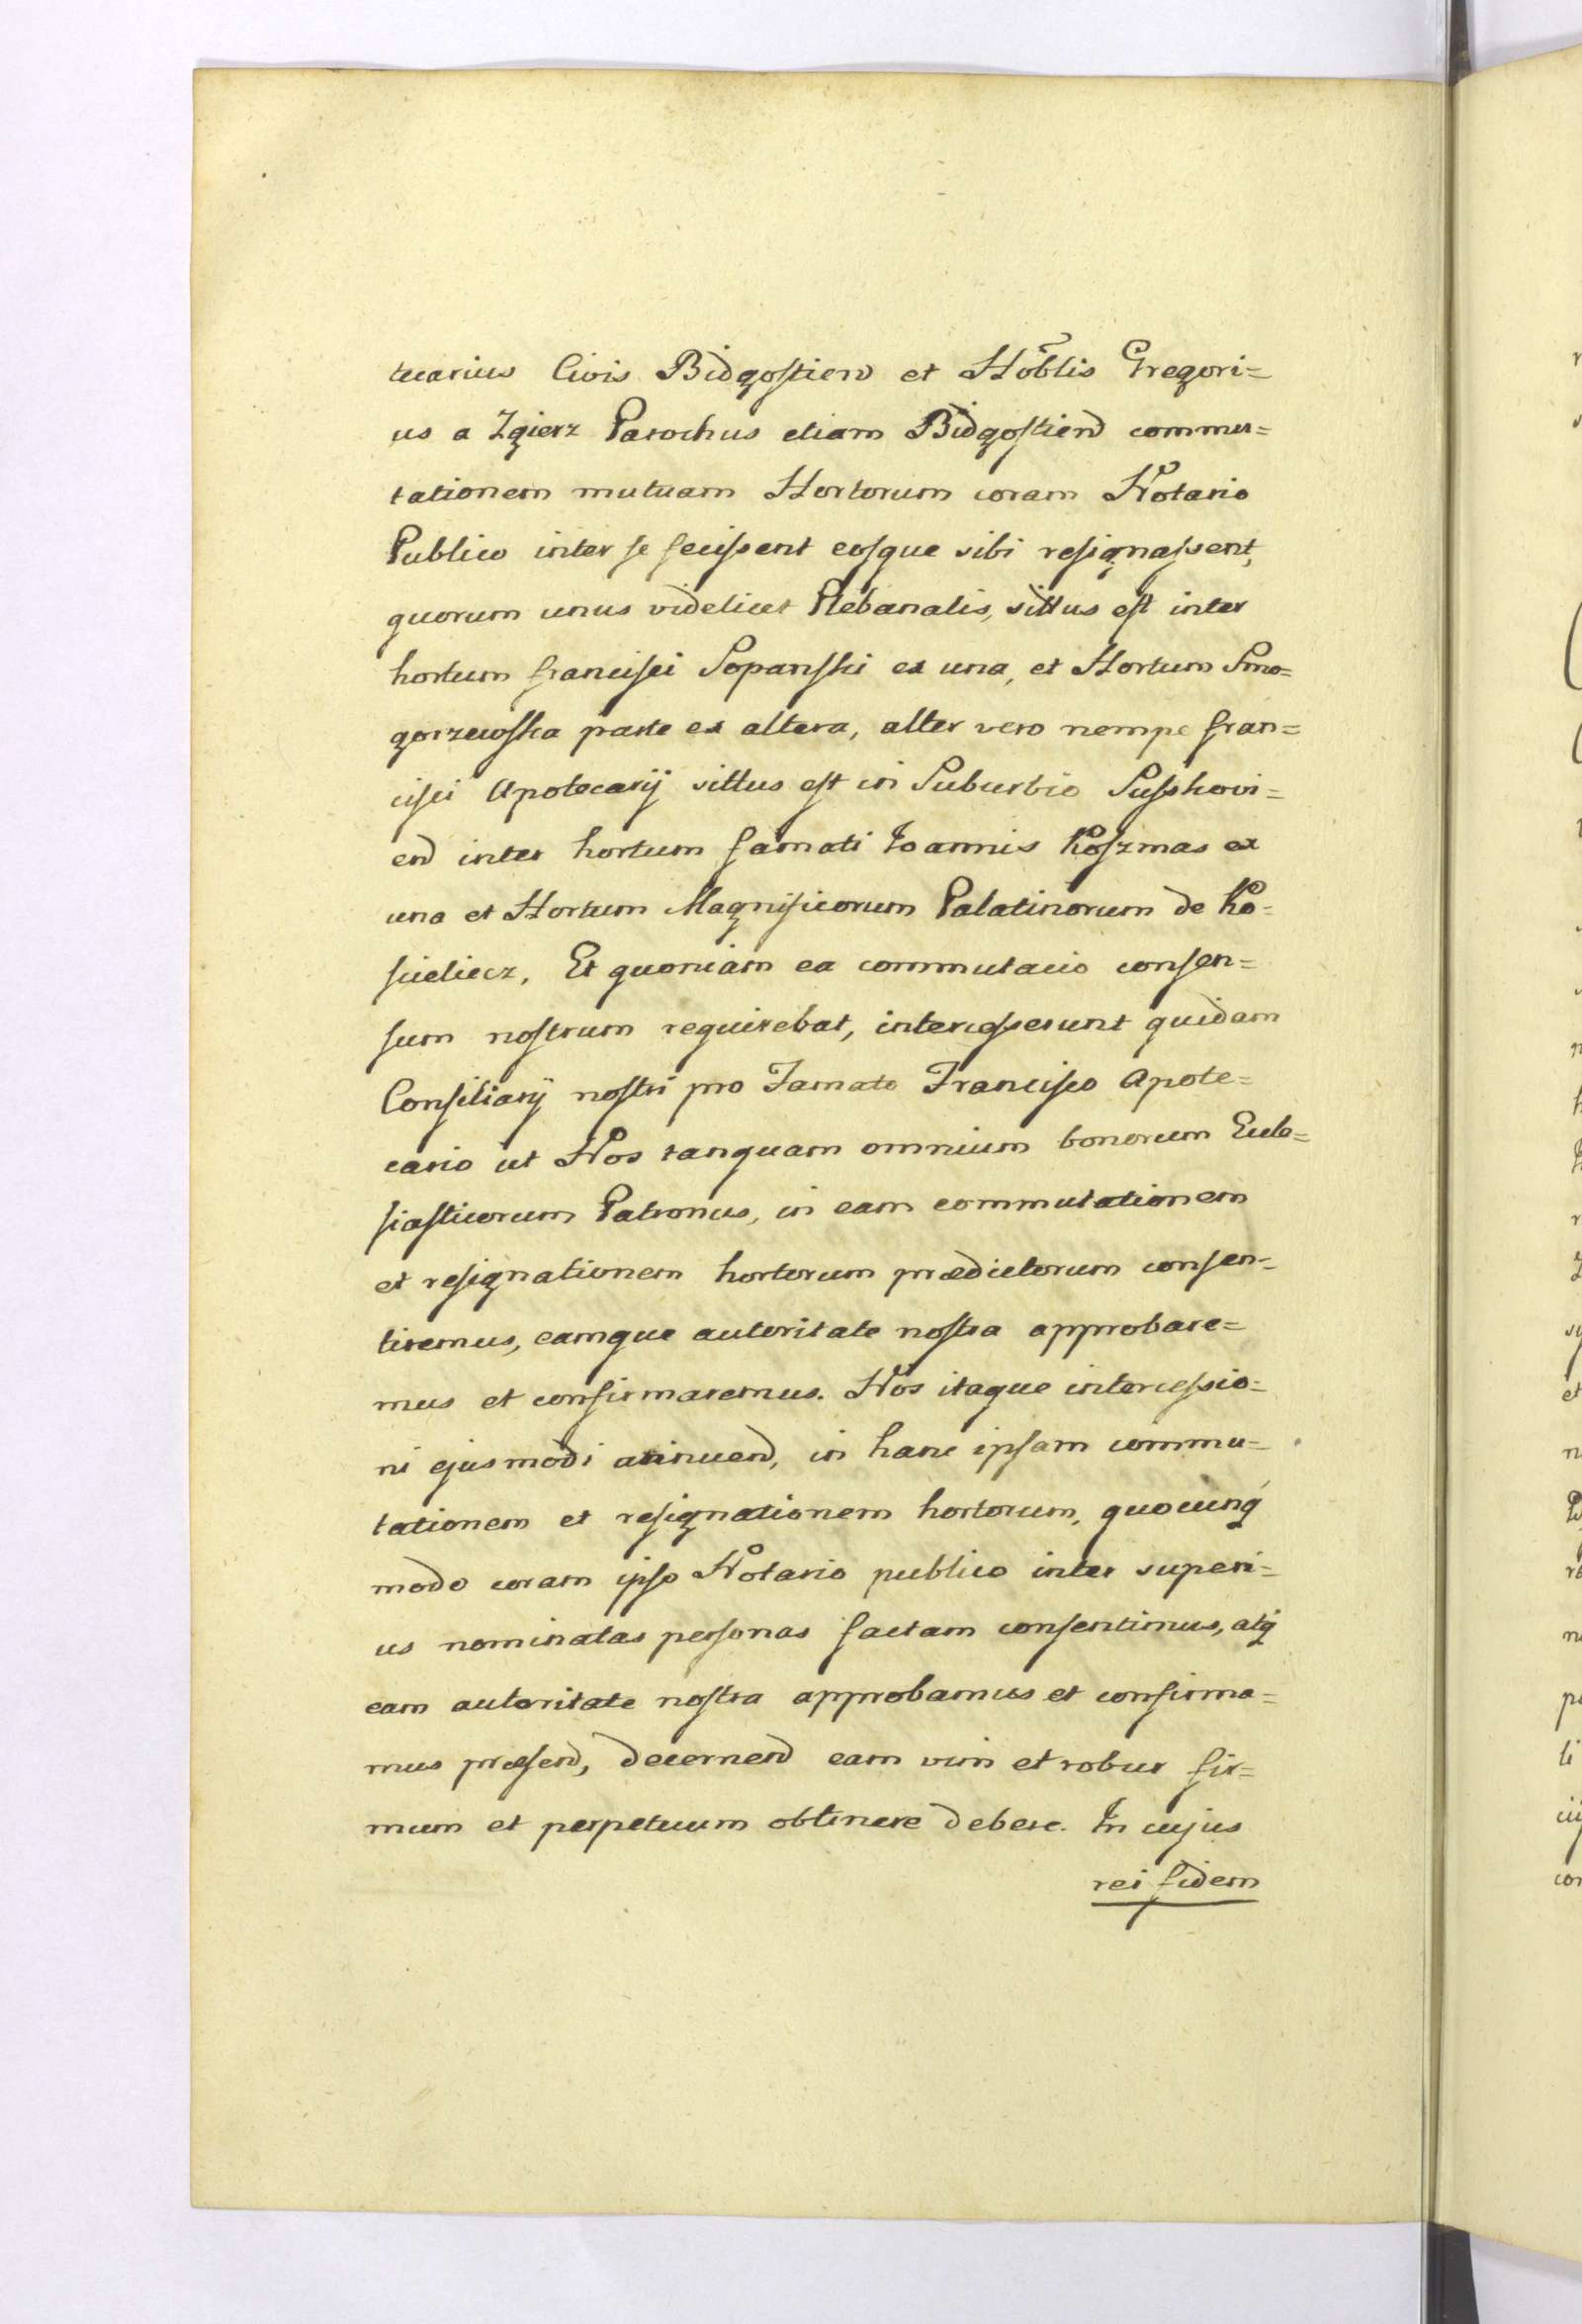 tuarius Civis Bidgostien et Hoblis Gregori=
us a Zgierz Parochus etiam Bidgostien commu=
tationem mutuam Hortorum coram Notario
Publico inter se fecissent eosque sibi resignassent,
quorum unus videlicet Plebanalis, sittus est inter
hortum francisci Sopanski ex una, et Hortum Smo=
gorzewska parte ex altera, alter vero nempe fran=
cisci Apotecarij sittus est in Suburbio Susskovi=
en inter hortum famati Joannis Koszmas ex
una et Hortum Magnificorum Palatinorum de Ko=
scieliecz, Et quoniam ea commutacio consen=
sum nostrum requirebat, intercesserunt quidam
Consiliarij nostri pro Famato Francisco Apote=
cario ut Nos tanquam omnium bonorum Eccle=
siasticorum Patronus, in eam commutationem
et resignationem hortorum prædictorum consen=
tiremus, eamque autoritate nostra approbare=
mus et confirmaremus. Nos itaque intercessio=
ni ejusmodi annuen, in hanc ipsam commu=
tationem et resignationem hortorum, quocunq
modo coram ipso Notario publico inter superi=
us nominatas personas factam consentimus, atq
eam autoritate nostra approbamus et confirma=
mus præsen, decernen eam vim et robur fir=
mum et perpetuum obtinere debere. In cujus
rei fidem